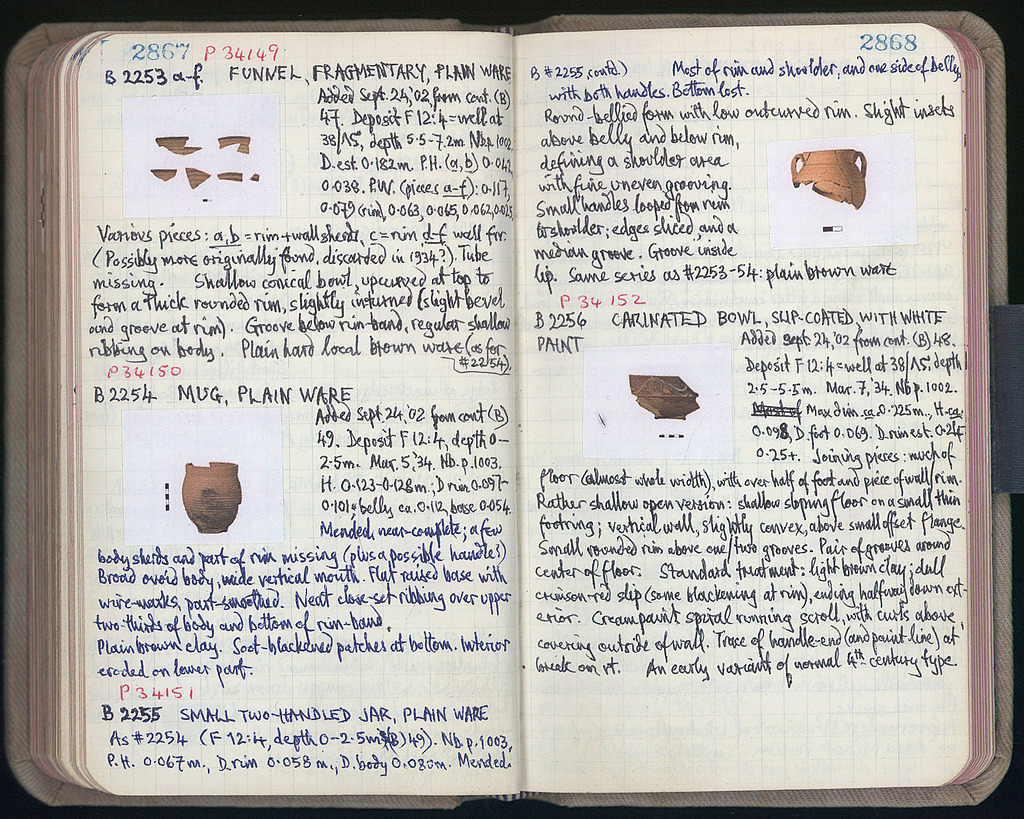 2867 P 34149
B 2253 a-f. FUNNEL, FRAGMENTARY, PLAIN WARE
Added Sept. 24, '02 from cont. (B)
47. Deposit F 12:4 = well at
38/ΛΣ, depth 5.5-7.2m. Nb p. 1002.
D. est. 0.182m. P.H. (a,b) 0.042,
0.038. P.W. (pieces a-f): 0.117,
0.079 (rim), 0.063, 0.065, 0.062, 0.025.
Various pieces: a, b = rim + wall sherds, c = rim d-f wall fr.
(Possibly more originally found, discarded in 1934?). Tube
missing. Shallow conical bowl, upcurved at top to
form a thick rounded rim, slightly inturned (slight bevel
and groove at rim). Groove below rim-band, regular shallow
ribbing on body. Plain hard local brown ware (as for
#2254).
P 34150
B 2254 MUG, PLAIN WARE
Added Sept. 24, '02 from cont (B)
49. Deposit F 12:4, depth 0-
2.5m. Mar. 5, '34. Nb. p. 1003.
H. 0.123-0.128m.; D rim 0.097-
0.101; belly ca. 0.112, base 0.054.
Mended, near-complete; a few
body sherds and part of rim missing (plus a possible handle?)
Broad ovoid body, wide vertical mouth. Flat raised base with
wire-marks, part-smoothed. Neat close-set ribbing over upper
two-thirds of body and bottom of rim-band.
Plain brown clay. Soot-blackened patches at bottom. Interior
eroded on lower part.
P 34151
B 2255 SMALL TWO-HANDLED JAR, PLAIN WARE
As #2254 (F 12:4, depth 0-2.5m, (B) 49). Nb. p. 1003.
P.H. 0.067m., D. rim 0.058 m., D. body 0.080m. Mended.
2868
B #2255, contd.) Most of rim and shoulder, and one side of belly,
with both handles. Bottom lost.
Round-bellied form with low outcurved rim. Slight insets
above belly and below rim,
defining a shoulder area
with fine uneven grooving.
Small handles looped from rim
to shoulder; edges sliced, and a
median groove. Groove inside
lip. Same series as #2253-54: plain brown ware
P 34152
B 2256 CARINATED BOWL, SLIP-COATED, WITH WHITE
PAINT
Added Sept. 24, '02 from cont. (B) 48.
Deposit F 12:4 = well at 38/ΛΣ, depth
2.5-5.5m. Mar. 7, 34. Nb p. 1002.
Max dim. ca. 0.225m., H. ca.
0.098, D. foot 0.069. D. rim est.
0.25+. Joining pieces: much of
floor (almost whole width), with over half of foot and piece of wall/rim.
Rather shallow open version: shallow sloping floor on a small thin
footring; vertical wall, slightly convex, above small offset flange.
Small rounded rim above one/two grooves. Pair of grooves around
center of floor. Standard treatment: light brown clay; dull
crimson-red slip (some blackening at rim), ending halfway down ext-
erior. Cream paint spiral running scroll, with curls above,
covering outside of wall. Trace of handle-end (and paint line) at
break on rt. An early variant of normal 4th. century type.